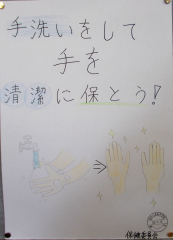 手洗いをして
手を
清潔に保とう!
保健委員会